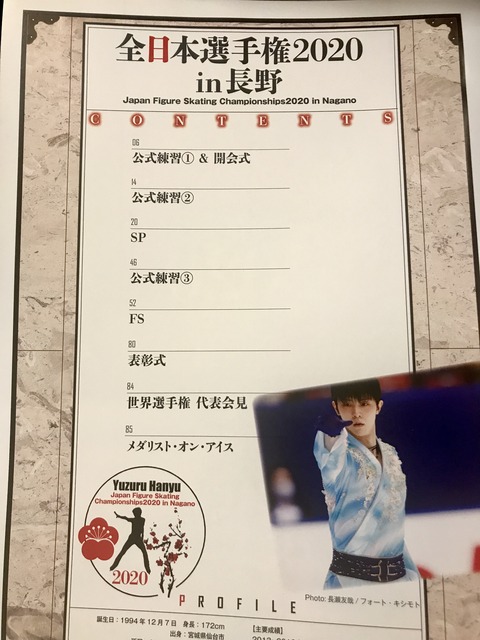 全日本選手権2020
in長野
Japan Figure Skating Championships2020 in Nagano
CONTENTS
06
公式練習① & 開会式
14
公式練習②
20
SP
46
公式練習③
52
FS
80
表彰式
84
世界選手権 代表会見
85
メダリスト・オン・アイス
Yuzuru Hanyu
Japan Figure Skating
Championships2020 in Nagano
2020
Photo: 長瀬友哉 / フォート・キシモト
PROFILE
誕生日:1994年12月7日 身長:172cm
出身:宮城県仙台市
【主要成績】